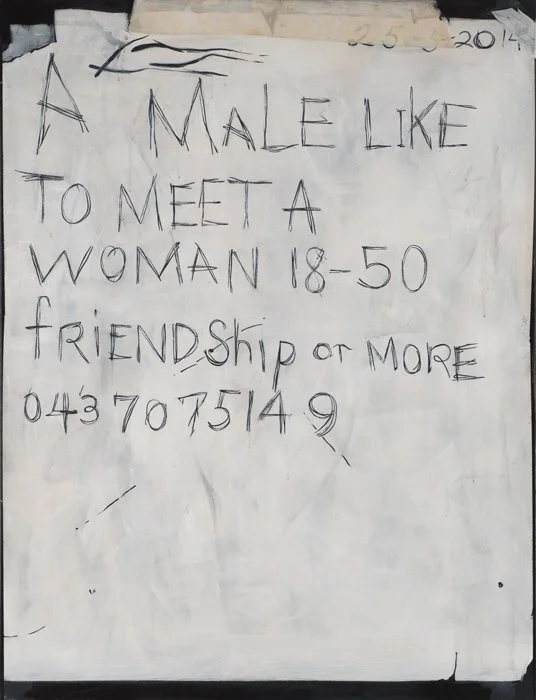 25-3-2014
A MALE LIKE
TO MEET A
WOMAN 18-50
fRiENDShip or MORE
0437075149